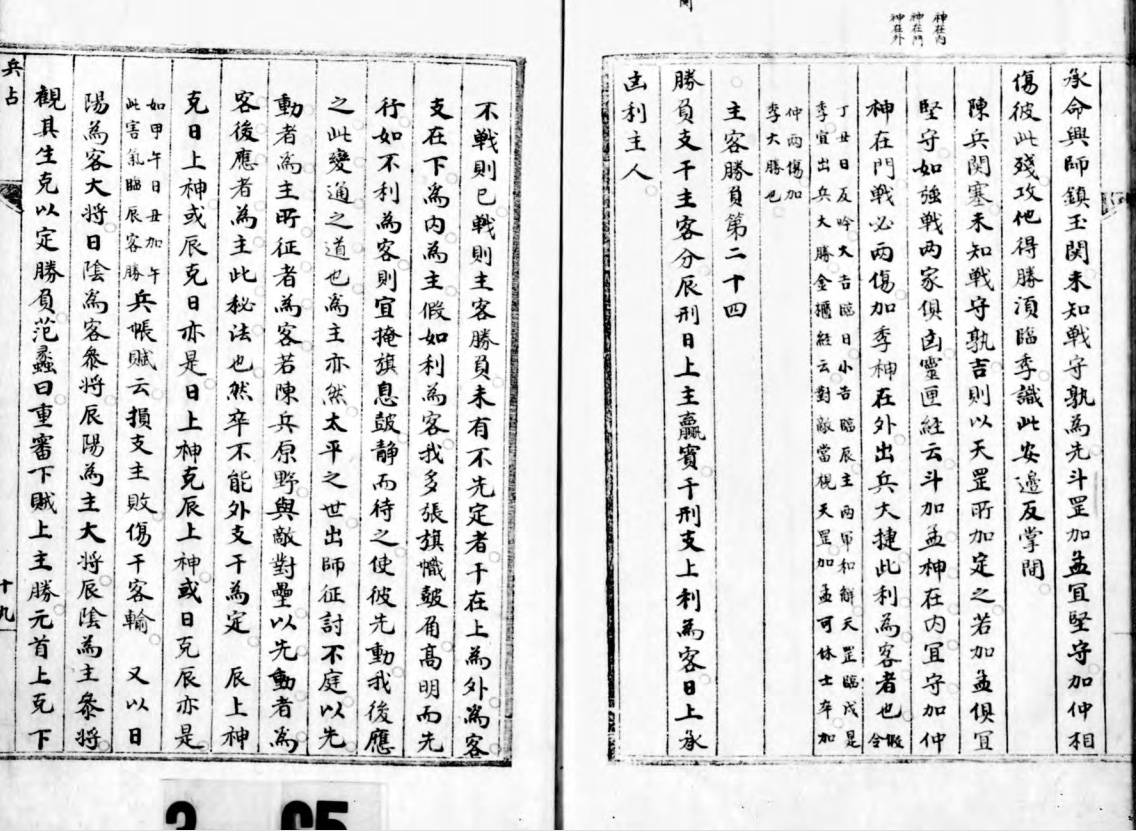 神在內
神在門
神在外
承命興師鎮玉関未知戦守孰為先斗罡加孟冝堅守加仲相
傷彼此殘攻他得勝湏臨季識此安邊反掌間
陳兵関塞未知戦守孰吉則以天罡所加定之若加孟俱冝
堅守如強戦两家俱凶靈匣経云斗加孟神在内冝守加仲
神在門戦必两傷加季神在外出兵大捷此利為客者也假令
丁丑日反吟大吉臨日小吉臨辰主两軍和解天罡臨戌是
季宜出兵大勝金匱経云對敵當視天罡加孟可休士卒加
仲两傷加
季大勝也
主客勝負第二十四
勝負支干主客分辰刑日上主贏賓干刑支上利為客日上承
凶利主人
不戦則已戦則主客勝負未有不先定者干在上為外為客
支在下為内為主假如利為客我多張旗幟皷角髙明而先
行如不利為客則宜掩旗息皷静而待之使彼先動我後應
之此變通之道也為主亦然太平之世出師征討不庭以先
動者為主所征者為客若陳兵原野與敵對壘以先動者為
客後應者為主此秘法也然卒不能外支干為定　辰上神
克日上神或辰克日亦是日上神克辰上神或日克辰亦是
如甲午日丑加午
此害氣臨辰客勝
兵帳賦云損支主敗傷干客輸　又以日
陽為客大将日陰為客叅将辰陽為主大将辰陰為主叅将
觀其生克以定勝負范蠡曰重審下賊上主勝元首上克下
兵占
十九